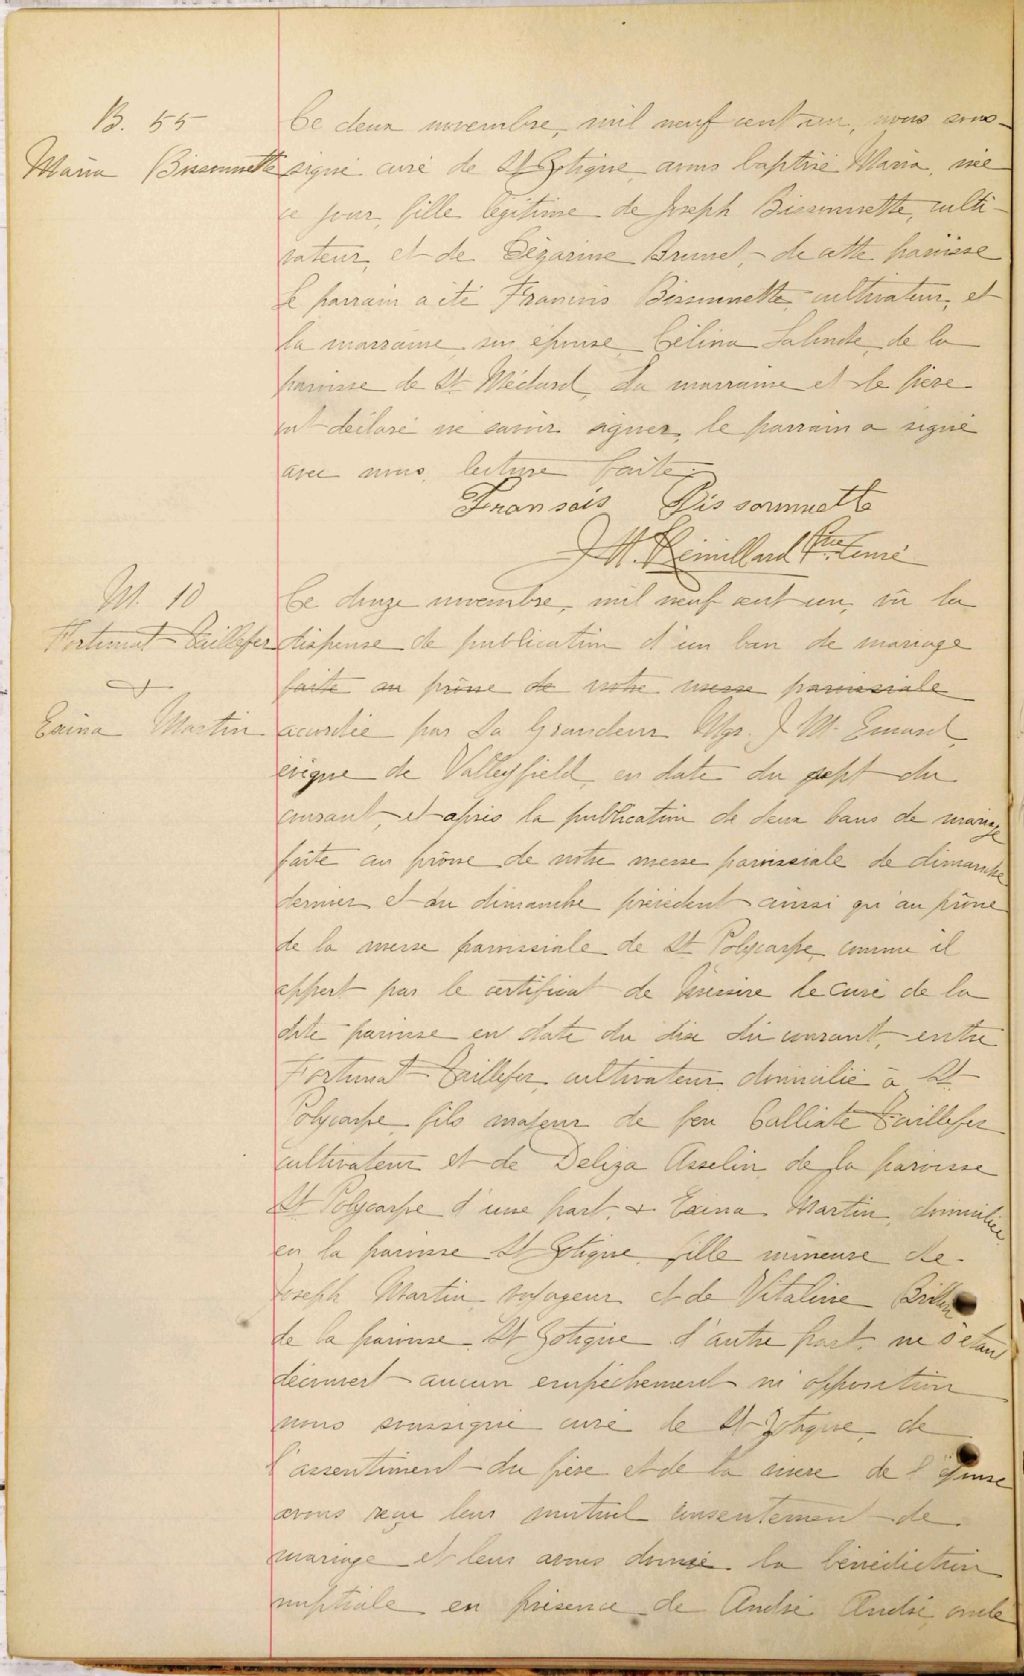 B. 55
Maria Bissonnette
Ce deux novembre, mil neuf cent un, nous sous-
signé curé de St Zotique, avons baptisé Maria, née
ce jour, fille légitime de Joseph Bissonnette, culti-
vateur, et de Cégarine Brunet, de cette paroisse
Le parrain a été Francois Bissonnette, cultivateur, et
la marraine, son épouse, Célina Lalonde, de la
paroisse de St Médard, La marraine et le père
ont déclaré ne savoir signer, le parrain a signé
avec nous, lecture faite.
Fransois Bissonnuette
J. M. Rémillard Ptre Curé
M. 10
Fortunat Taillefer
&
Exina Martin
Ce douze novembre, mil neuf cent un, vû la
dispense de publication d'un ban de mariage
faite au prône de notre messe paroissiale
accordée par Sa Grandeur Mgr. J. M. Emard,
évêque de Valleyfield, en date du sept du
courant, et après la publication de deux bans de mariage
faite au prône de notre messe paroissiale de dimanche
dernier et du dimanche précédent ainsi qu'au prône
de la messe paroissiale de St Polycarpe, comme il
appert par le certificat de Messire le curé de la
dite paroisse en date du dix du courant, entre
Fortunat Taillefer, cultivateur, domicilié à St
Polycarpe, fils majeur de feu Calliste Taillefer
cultivateur et de Deliza Asselin, de la paroisse
St Polycarpe d'une part, & Exina Martin, domiciliée
en la paroisse St Zotique, fille mineure de
Joseph Martin, voyageur et de Vitaline
de la paroisse St Zotique d'autre part, ne s'étant
découvert aucun empêchement ni opposition
nous soussigné curé de St Zotique, de
l'assentiment du père et de la mère de l'épouse
avons reçu leur mutuel consentement de
mariage et leur avons donné la bénédiction
nuptiale en présence de André André, oncle